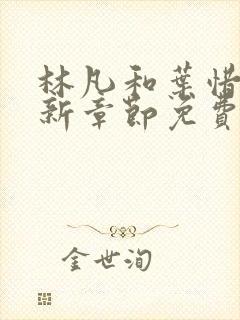 林凡和葉惜
新章節免費
金世洵